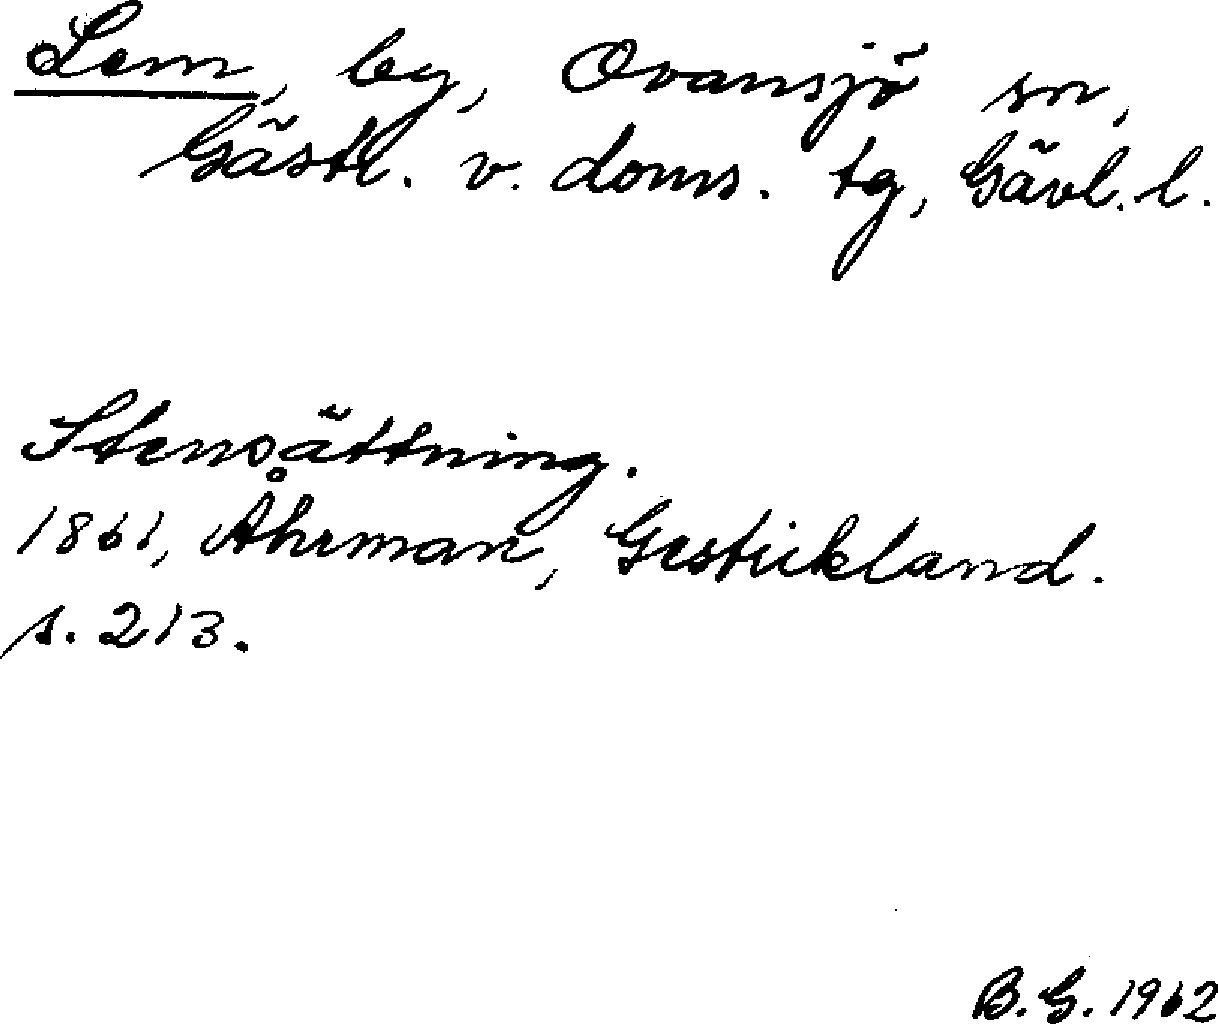 Lem, by, Ovansjö sn,
Gästl. v. doms. tg, Gävl. l.
Stensättning.
1861, Åhrman, Gestrikland.
s. 213.
B.G. 1962